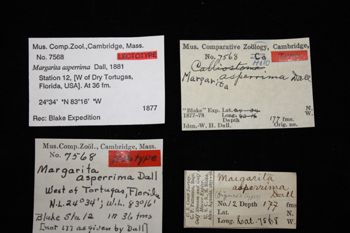 Mus. Comp. Zool., Cambridge, Mass.
No. 7568 LECTOTYPE
Margarita asperrima Dall, 1881
Station 12, [W of Dry Tortugas,
Florida, USA]. At 36 fm.
24°34' N 83°16' W
1877
Rec: Blake Expedition
Mus. Comparative Zoölogy, Cambridge,
No. 7568 Ca
Calliostoma
Margarita asperrima Dall
"Blake" Exp. Lat. N.
1877-78 Long. W.
Depth 177 fms.
Iden. W. H. Dall. Orig. no.
Mus. Comp. Zoöl., Cambridge, Mass.
No. 7568
Margarita
asperrima Dall
West of Tortugas, Florida
N.L. 24°34', W.L. 83°16'
Blake Sta 12 in 36 fms
as given by Dall
Margarita
asperrima
Dall
No. 12 Depth 177 fms
Lat. N.
Long. W.
7568